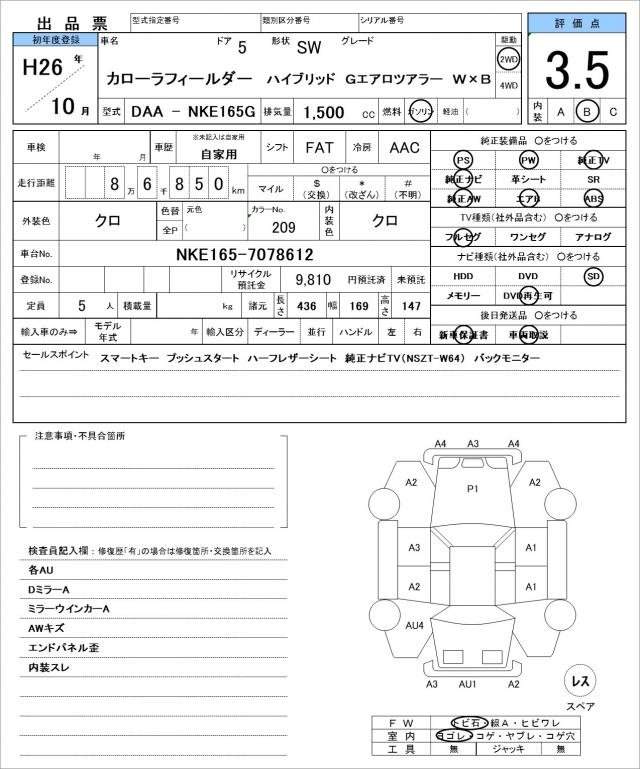 出品票 型式指定番号 類別区分番号 シリアル番号 評価点
初年度登録 車名 ドア 5 形状 SW グレード 駆動
H26 年 カローラフィールダー ハイブリッド Gエアロツアラー W×B 2WD 3.5
4WD
10 月 型式 DAA - NKE165G 排気量 1,500 cc 燃料 ガソリン 軽油 ( ) 内装 A B C
車検 年 月 車歴 ※未記入は自家用 自家用 シフト FAT 冷房 AAC 純正装備品 〇をつける
PS PW 純正TV
走行距離 8 万 6 千 8 5 0 km 〇をつける 純正ナビ 革シート SR
マイル $ (交換) * (改ざん) # (不明) 純正AW エアB ABS
外装色 クロ 色替 元色 カラーNo. 209 内装色 クロ TV種類(社外品含む) 〇をつける
全P ( ) フルセグ ワンセグ アナログ
車台No. NKE165-7078612 ナビ種類(社外品含む) 〇をつける
登録No. リサイクル預託金 9,810 円預託済 未預託 HDD DVD SD
定員 5 人 積載量 kg 諸元 長さ 436 幅 169 高さ 147 メモリー DVD再生可
後日発送品 〇をつける
輸入車のみ⇒ モデル年式 年 輸入区分 ディーラー 並行 ハンドル 左 右 新車保証書 車両取説
セールスポイント スマートキー プッシュスタート ハーフレザーシート 純正ナビTV(NSZT-W64) バックモニター
注意事項・不具合箇所
検査員記入欄：修復歴「有」の場合は修復箇所・交換箇所を記入
各AU
DミラーA
ミラーウインカーA
AWキズ
エンドパネル歪
内装スレ
A4 A3 A4
A2 P1 A2
A3 A1
A2 A1
AU4
A3 AU1 A2
レス
スペア
FW トビ石・線A・ヒビワレ
室内 ヨゴレ・コゲ・ヤブレ・コゲ穴
工具 無 ジャッキ 無